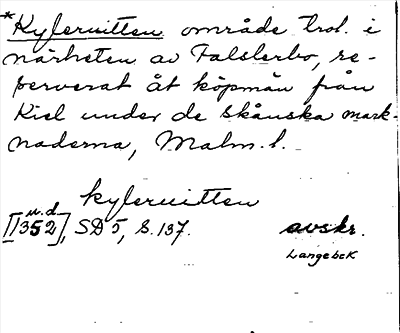 *Kylervitten område trol. i
närheten av Falsterbo, re-
serverat åt köpmän från
Kiel under de skånska mark-
naderna, Malm. l.
kylervitten
u.d.
[1352], SD 5, S. 137. avskr.
Langebek